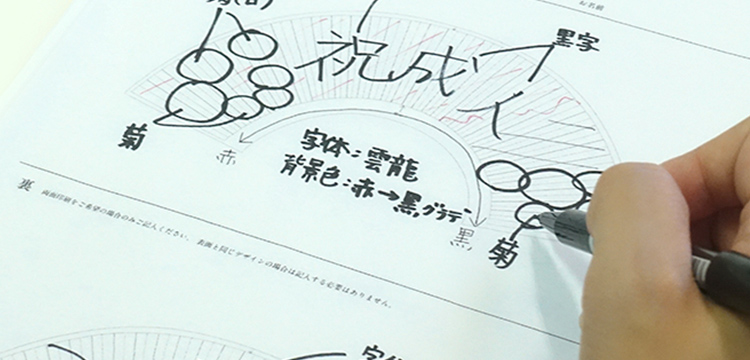 お名前
黒字
祝成人
菊
赤
字体：雲龍
背景色：赤→黒グラデ
黒
菊
裏
両面印刷をご希望の場合のみご記入ください。表面と同じデザインの場合は記入する必要はありません。